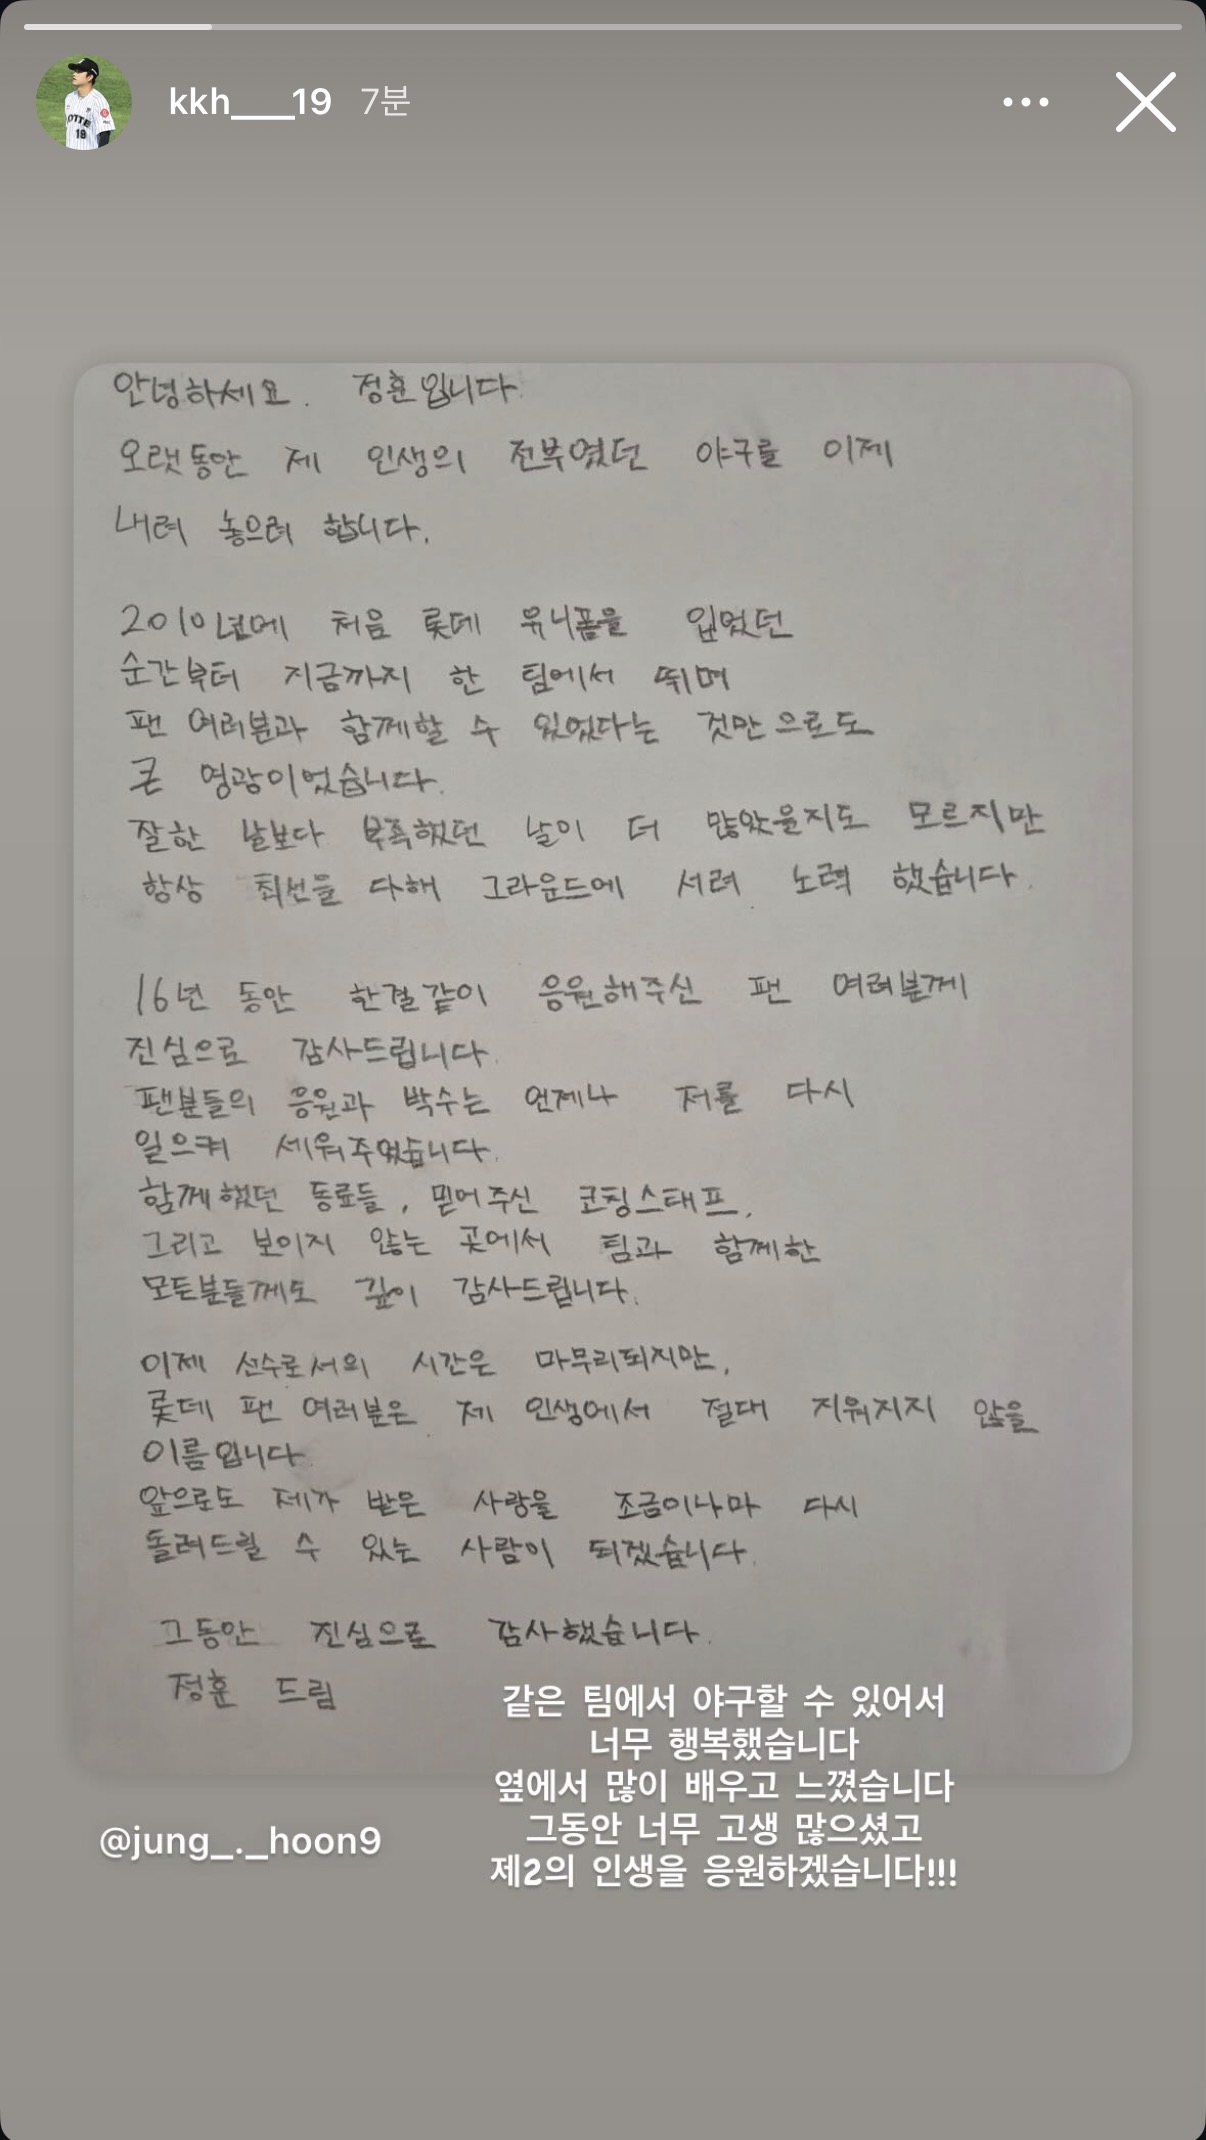 kkh___19 7분
OTTE
19
안녕하세요. 정훈입니다.
오랫동안 제 인생의 전부였던 야구를 이제
내려 놓으려 합니다.
2010년에 처음 롯데 유니폼을 입었던
순간부터 지금까지 한 팀에서 뛰며
팬 여러분과 함께할 수 있었다는 것만으로도
큰 영광이었습니다.
잘한 날보다 부족했던 날이 더 많았을지도 모르지만
항상 최선을 다해 그라운드에 서려 노력 했습니다.
16년 동안 한결같이 응원해주신 팬 여러분께
진심으로 감사드립니다.
팬분들의 응원과 박수는 언제나 저를 다시
일으켜 세워주었습니다.
함께했던 동료들, 믿어주신 코칭스태프,
그리고 보이지 않는 곳에서 팀과 함께한
모든분들께도 깊이 감사드립니다.
이제 선수로서의 시간은 마무리되지만,
롯데 팬 여러분은 제 인생에서 절대 지워지지 않을
이름입니다.
앞으로도 제가 받은 사랑을 조금이나마 다시
돌려드릴 수 있는 사람이 되겠습니다.
그동안 진심으로 감사했습니다.
정훈 드림
같은 팀에서 야구할 수 있어서
너무 행복했습니다
옆에서 많이 배우고 느꼈습니다
그동안 너무 고생 많으셨고
제2의 인생을 응원하겠습니다!!!
@jung_._hoon9